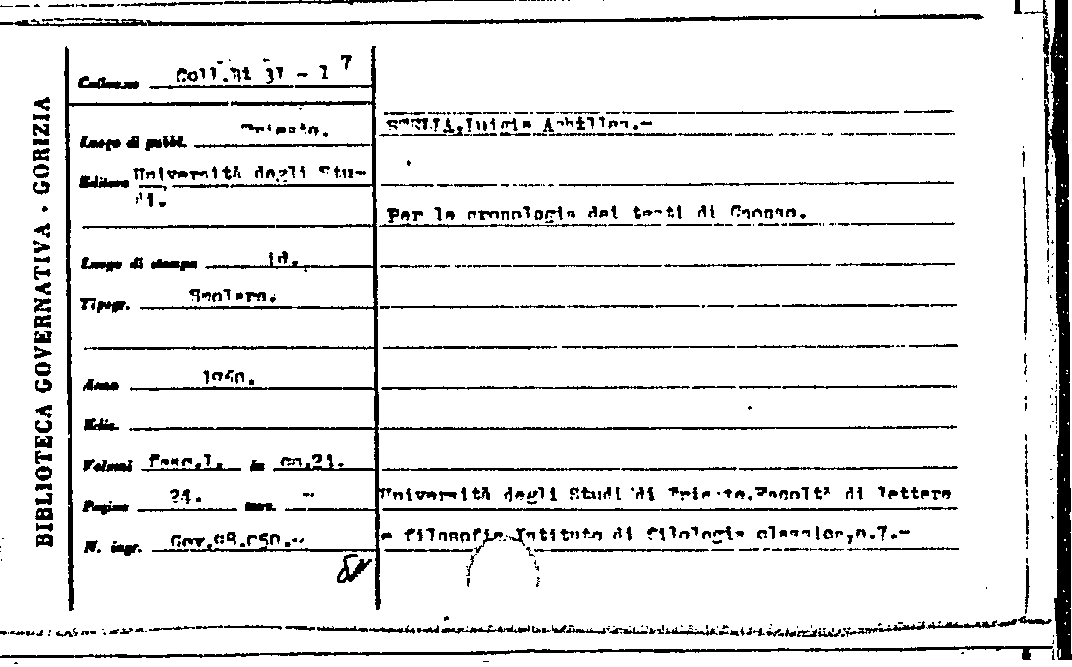 BIBLIOTECA GOVERNATIVA · GORIZIA
Collocaz. Coll.Bi 31 - 1 7
Luogo di pubbl. Trieste.
Editore Università degli Stu-
di.
Luogo di stampa id.
Tipogr.
Anno
Ediz.
Volumi Fasc.1. in
Pagine 24. tav. -
N. ingr.
STELLA,Luigia Achillea.-
Per la cronologia dei testi di Cnosso.
Università degli Studi di Trieste.Facoltà di lettere
e filosofia.Istituto di filologia classica,n.7.-